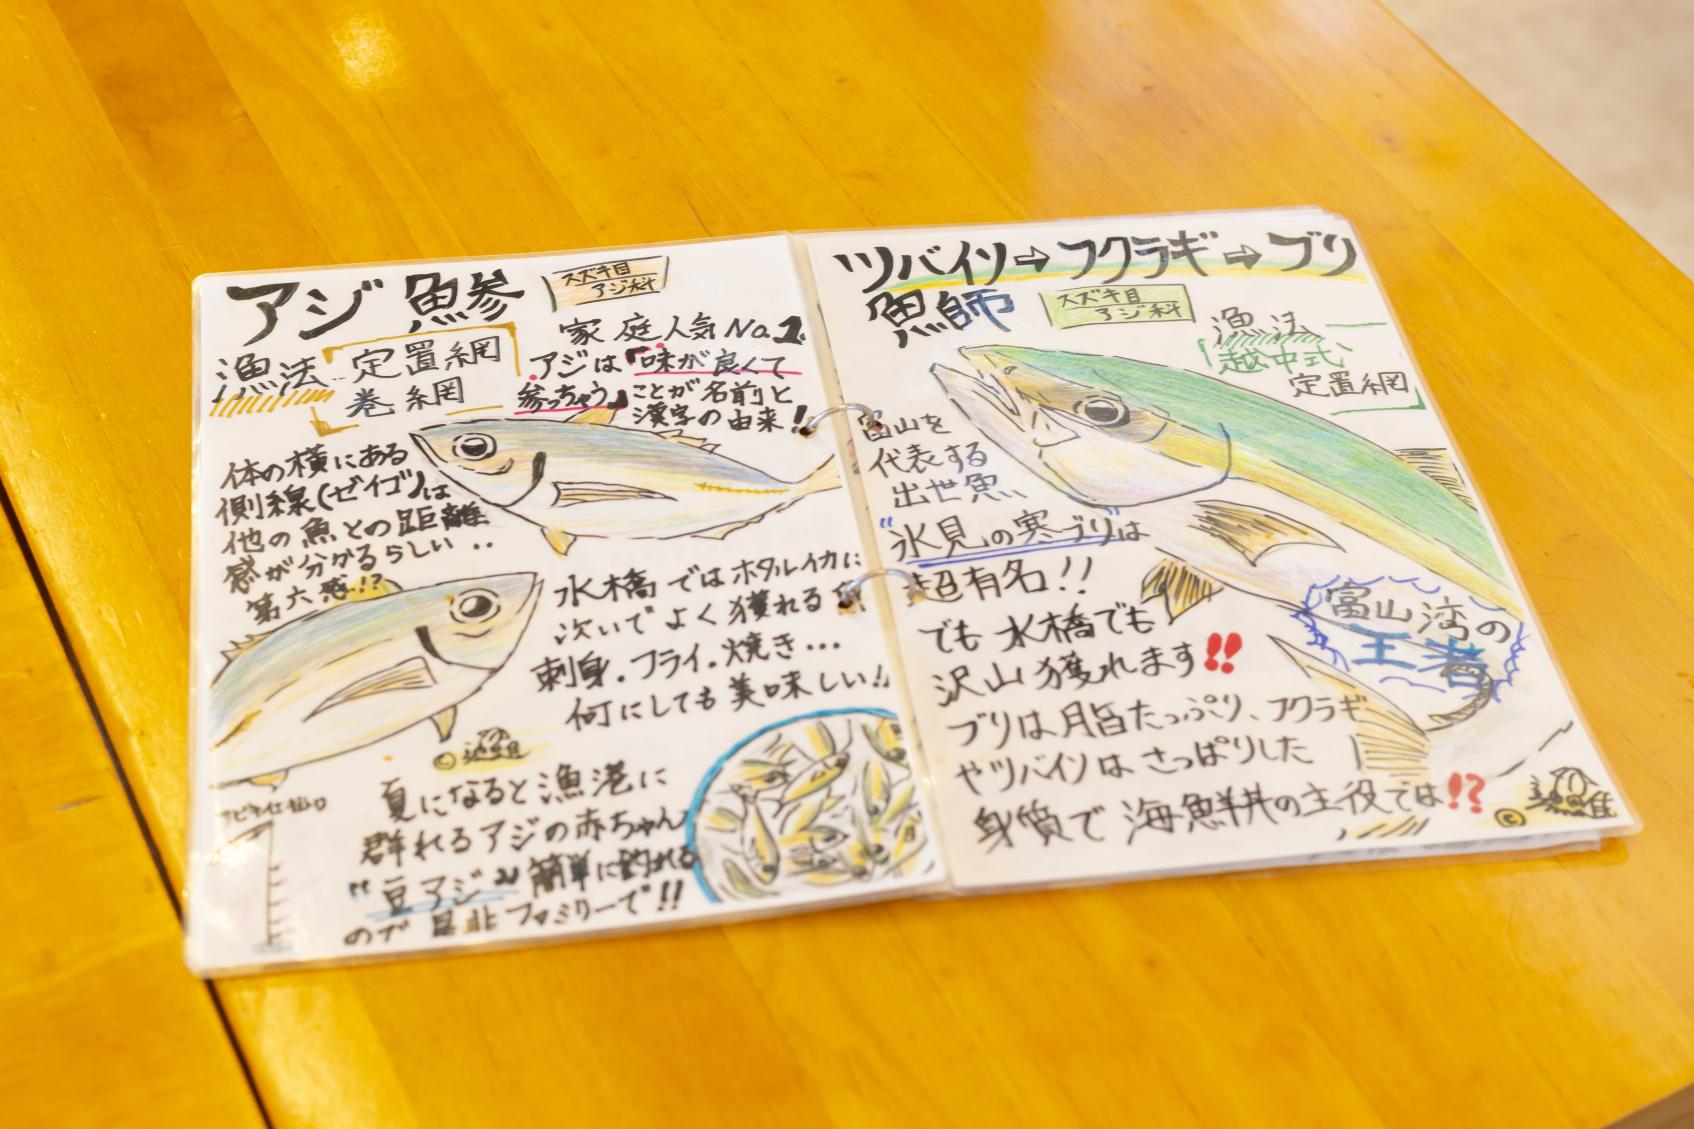 アジ 鯵
スズキ目
アジ科
漁法
定置網
巻網
家庭人気No.1
アジは「味が良くて
参っちゃう」ことが名前と
漢字の由来!
体の横にある
側線(ゼイゴ)は
他の魚との距離
感が分かるらしい..
第六感!?
水橋ではホタルイカに
次いでよく獲れる
刺身.フライ.焼き...
何にしても美味しい!!
夏になると漁港に
群れるアジの赤ちゃん
"豆アジ" 簡単に釣れる
ので是非ファミリーで!!
ツバイソ⇨フクラギ⇨ブリ
魚師
スズキ目
アジ科
漁法
越中式
定置網
富山を
代表する
出世魚
"氷見の寒ブリ"は
超有名!!
でも水橋でも
沢山獲れます!!
ブリは脂たっぷり、フクラギ
やツバイソはさっぱりした
身質で海鮮丼の主役では!?
富山湾の
王者